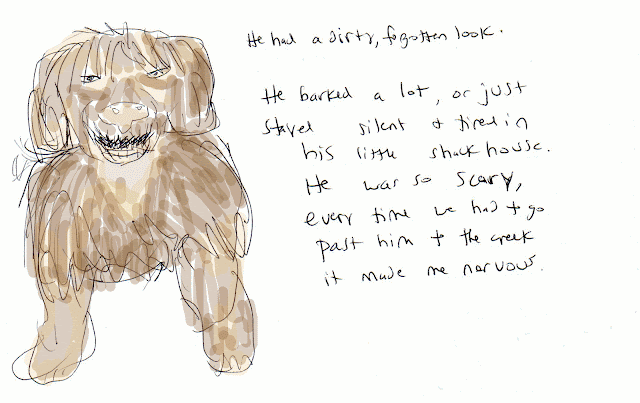 He had a dirty, forgotten look.
He barked a lot, or just
stayed silent & tired in
his little shack house.
He was so scary,
every time we had to go
past him to the creek
it made me nervous.